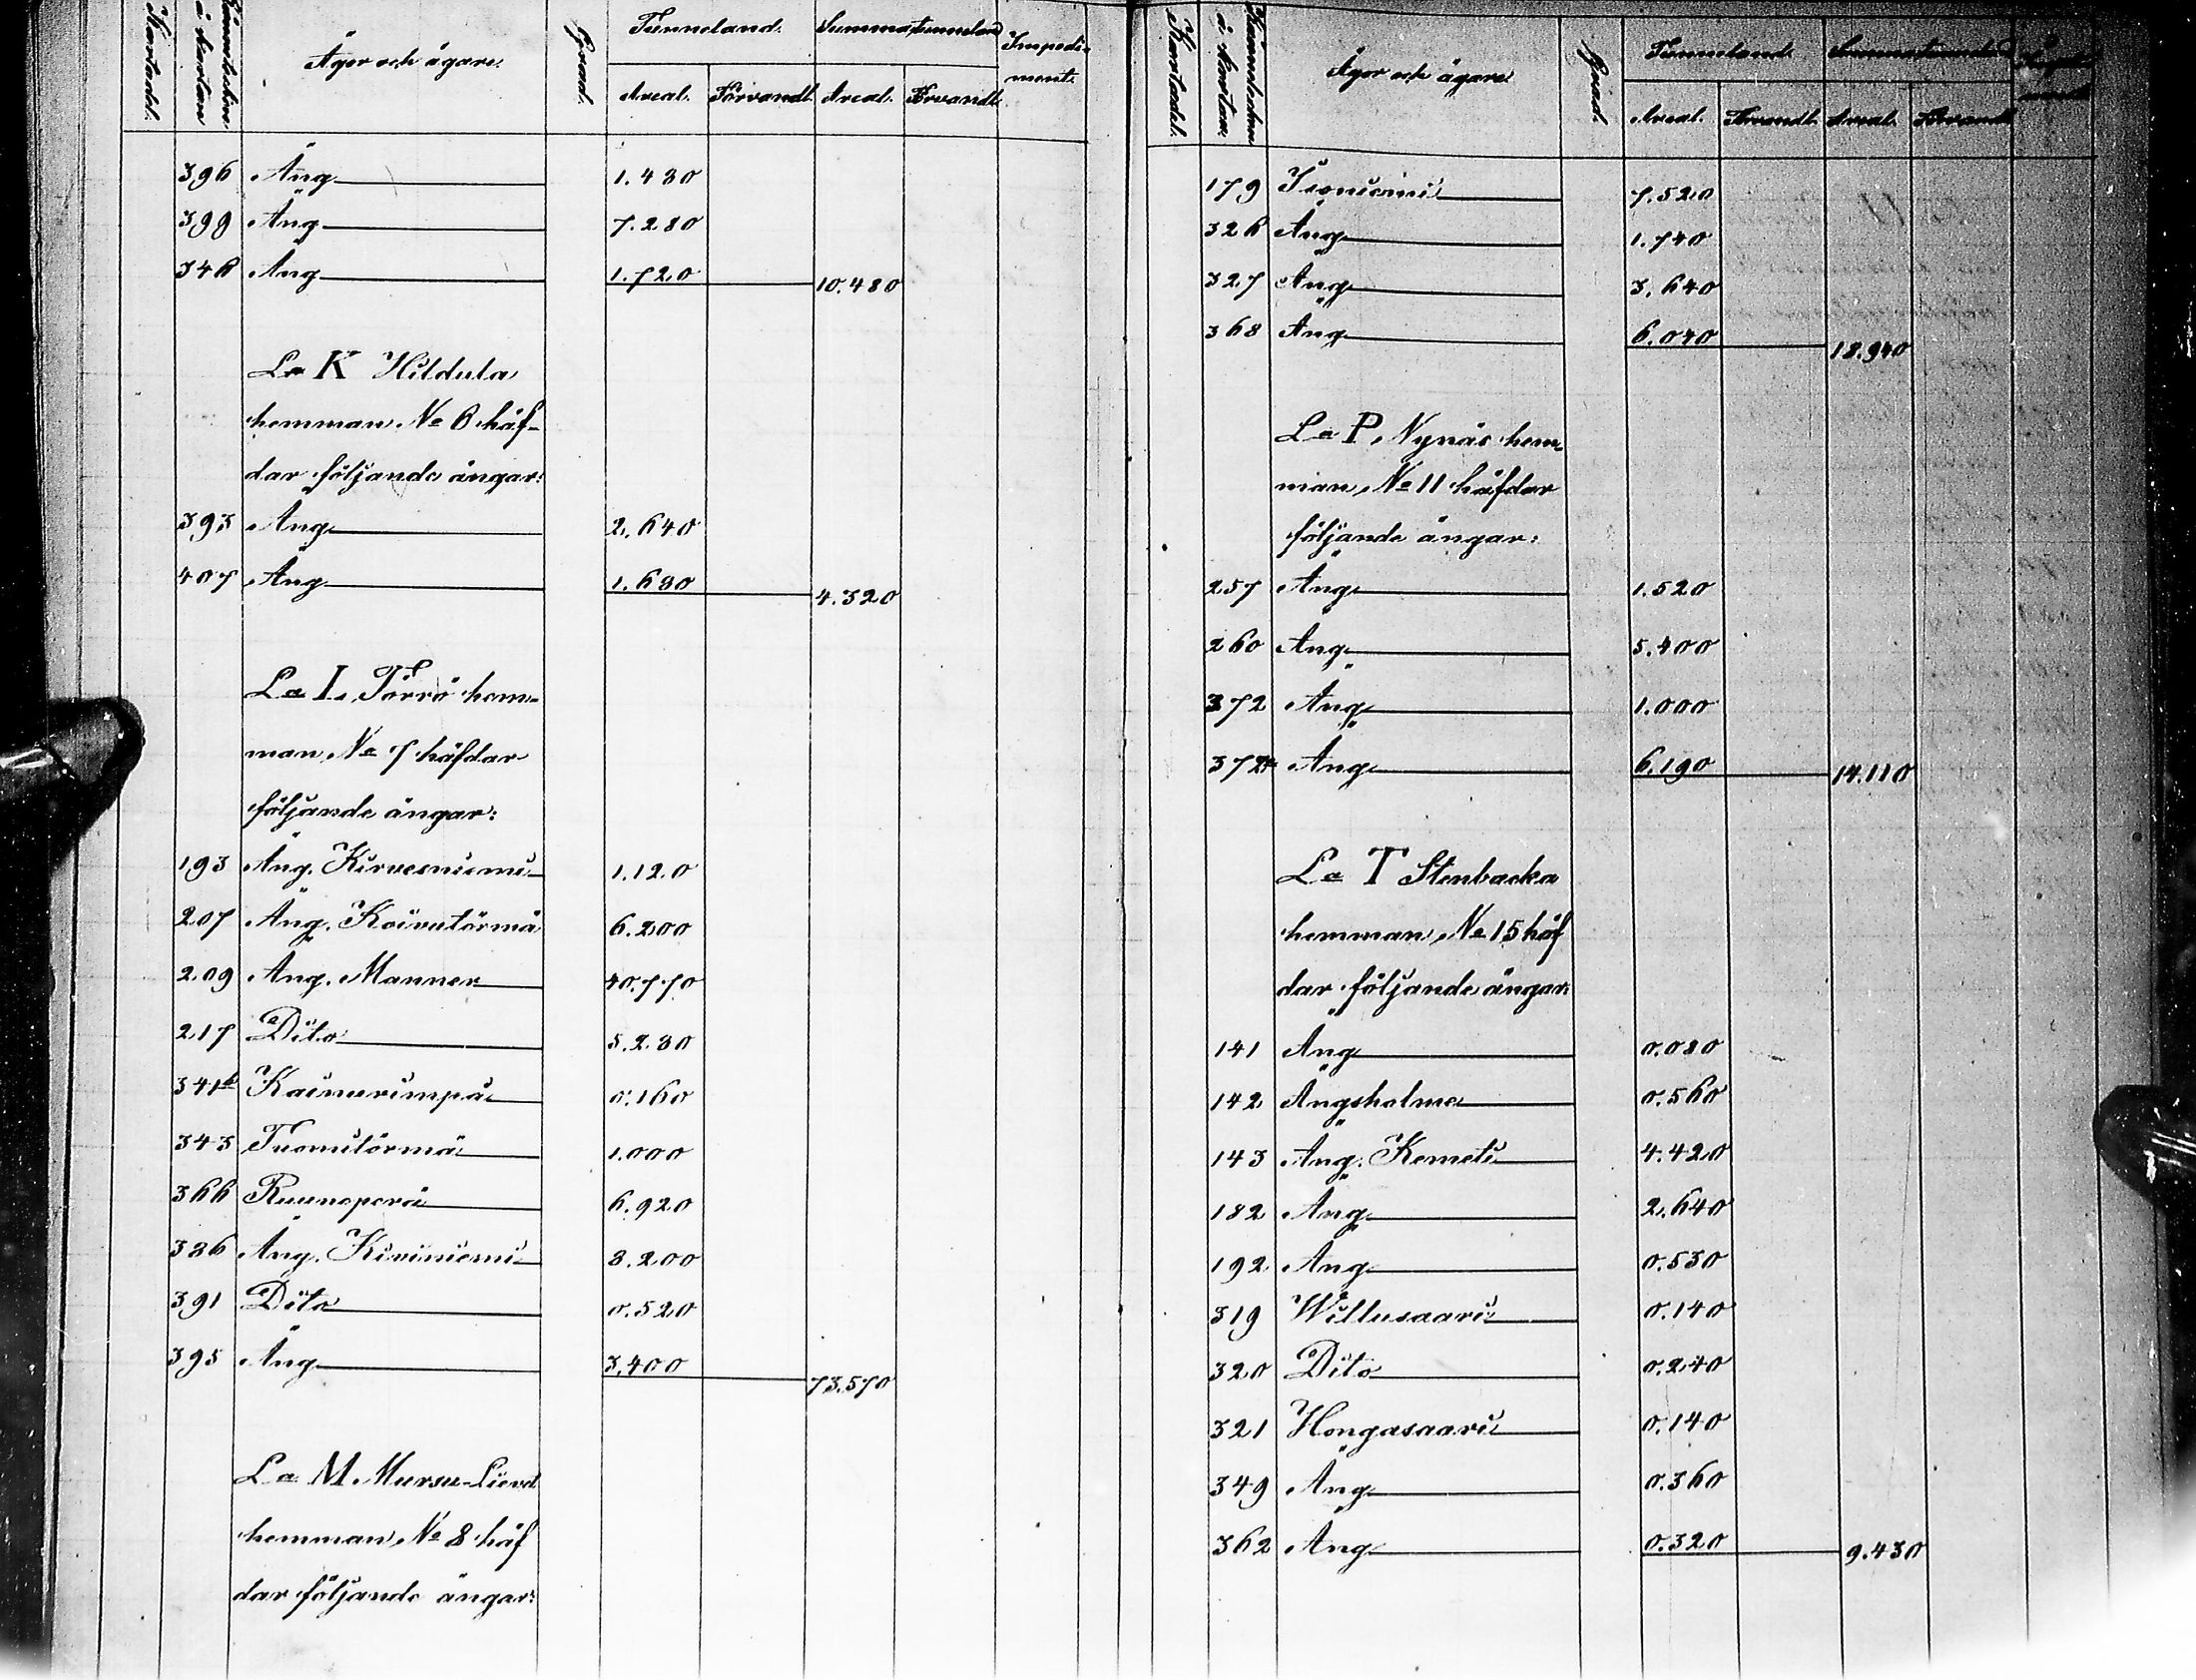 Kartadel. Kännetecken å kartan Ägor och ägare. Grad. Tunneland. Summa tunneland Impediment.
Areal. Förvandl. Areal. Förvandl.
396 Äng 1.480
399 Äng 7.280
346 Äng 1.720 10.480
La K Hildula
hemman No 6 häf-
dar följande ängar:
393 Äng 2.640
407 Äng 1.680 4.320
La L Törrö hem-
man No 7 häfdar
följande ängar:
193 Äng. Kirvesniemi 1.120
207 Äng. Koivutörmä 6.200
209 Äng. Manner 40.770
217 Dito 5.280
341b Kainurimpi 0.160
343 Tuomitörmä 1.000
366 Ruunaperä 6.920
386 Äng. Kiviniemi 8.200
391 Dito 0.520
395 Äng 3.400 73.570
La M Mursu-Lievd
hemman No 8 häf
dar följande ängar:
Kartadel. Kännetecken å kartan. Ägor och ägare. Grad. Tunneland. Summa tunneland
Areal. Förvandl. Areal. Förvandl.
179 Isoniemi 7.520
326 Äng 1.740
327 Äng 3.640
368 Äng 6.040 18.940
La P Nynäs hem-
man No 11 häfdar
följande ängar:
257 Äng 1.520
260 Äng 5.400
372 Äng 1.000
372a Äng 6.190 14.110
La T Stenbacka
hemman No 15 häf
dar följande ängar:
141 Äng 0.080
142 Ängsholme 0.560
143 Äng. Kemeti 4.420
182 Äng 2.640
192 Äng 0.530
319 Willusaari 0.140
320 Dito 0.240
321 Hongasaari 0.140
349 Äng 0.360
362 Äng 0.320 9.430